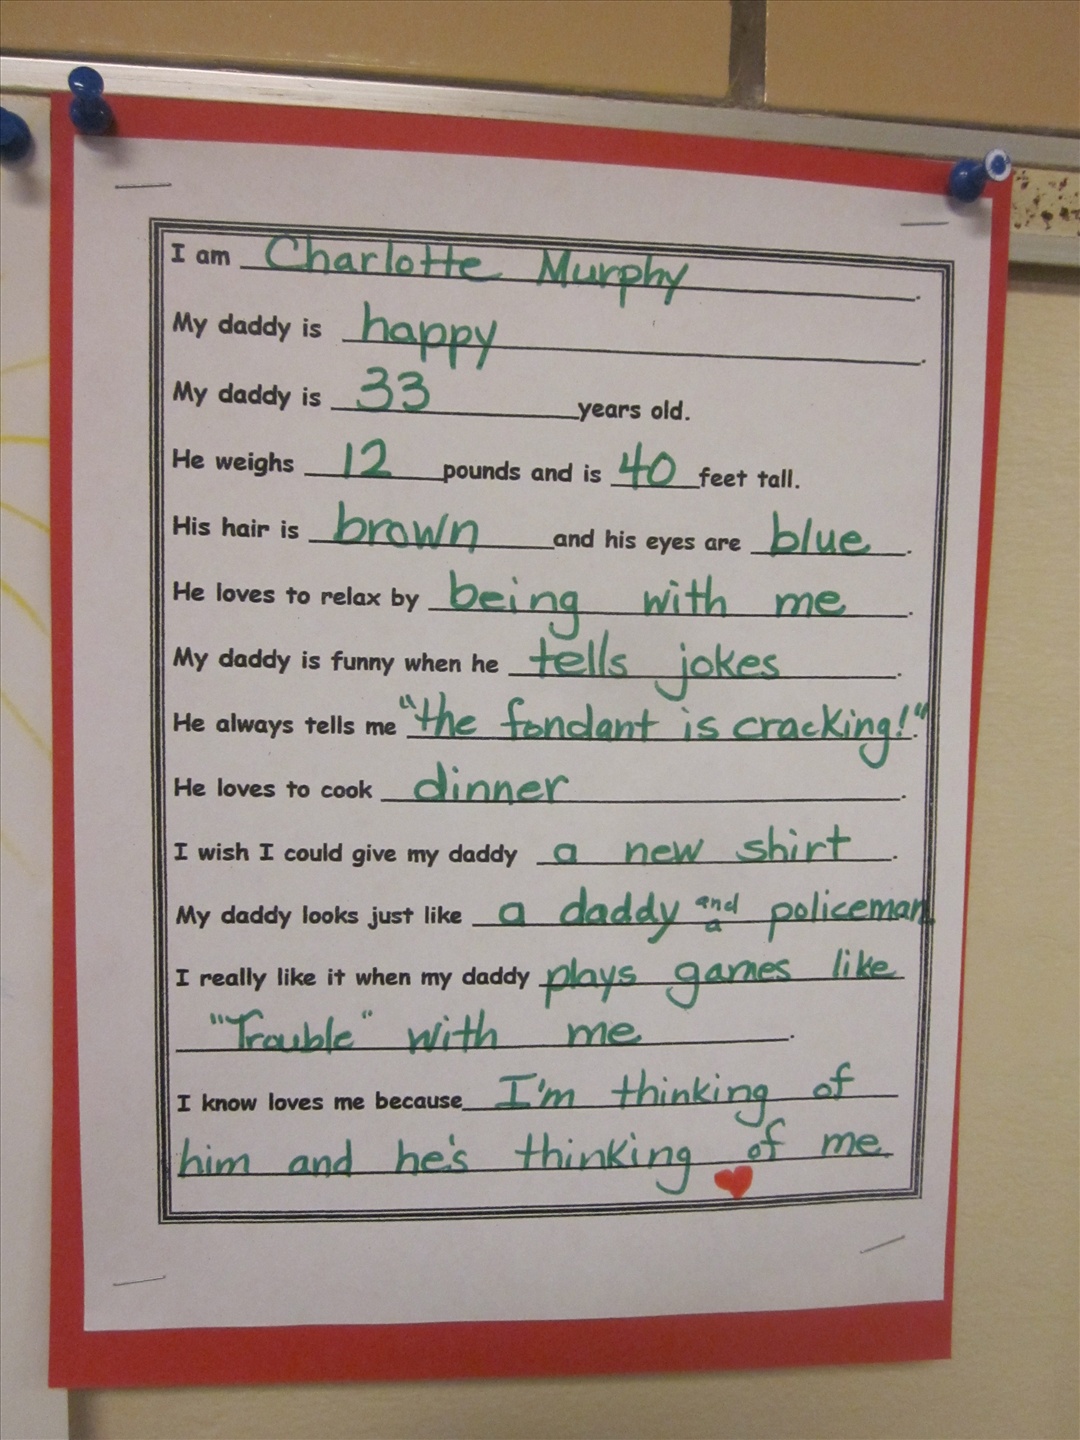 I am Charlotte Murphy.
My daddy is happy.
My daddy is 33 years old.
He weighs 12 pounds and is 40 feet tall.
His hair is brown and his eyes are blue.
He loves to relax by being with me.
My daddy is funny when he tells jokes.
He always tells me "the fondant is cracking!".
He loves to cook dinner.
I wish I could give my daddy a new shirt.
My daddy looks just like a daddy and a policeman
I really like it when my daddy plays games like
"Trouble" with me.
I know loves me because I'm thinking of
him and he's thinking of me.